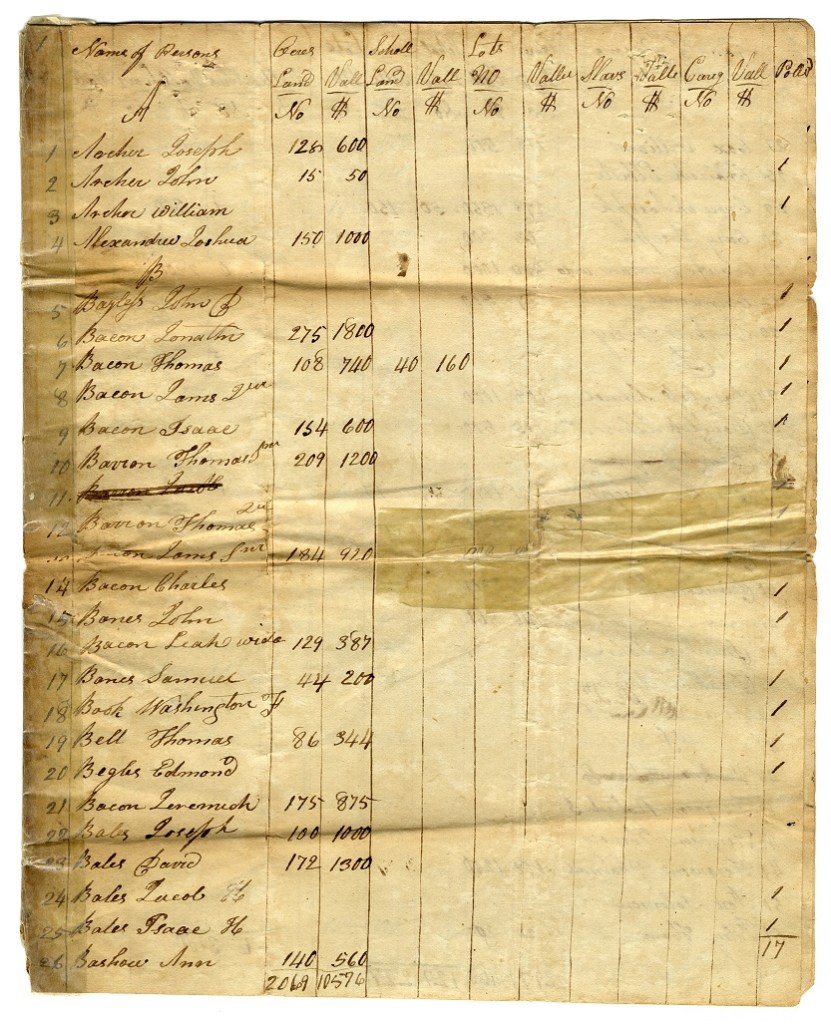 1 Name of Persons Ceres Scholl Lots
Land Vall Land Vall No Vallu Slavs Valle Careg Vall Polld
A No $ No $ No $ No $ No $
1 Archer Joseph 128 600
2 Archer John 15 50 1
3 Archer William 1
4 Alexandrew Joshua 150 1000
B
5 Bayless John D 1
6 Bacon Jonathn 275 1800 1
7 Bacon Thomas 108 740 40 160 1
8 Bacon Jams Jur 1
9 Bacon Isaac 154 600 1
10 Barron Thomas Snr 209 1200
11 Barron Jacob 1
12 Barron Thomas Jur 1
Jams Snr 184 920
14 Bacon Charles 1
15 Banes John 1
16 Bacon Leah wido 129 387
17 Banes Samuel 44 200 1
18 Book Washington F 1
19 Bell Thomas 86 344 1
20 Begles Edmond 1
21 Bacon Jeremioh 175 875
22 Bales Joseph 100 1000
23 Bales David 172 1300
24 Bales Jacob H 1
25 Bales Isaac H 1
17
26 Bashow Ann 140 560
2069 10576